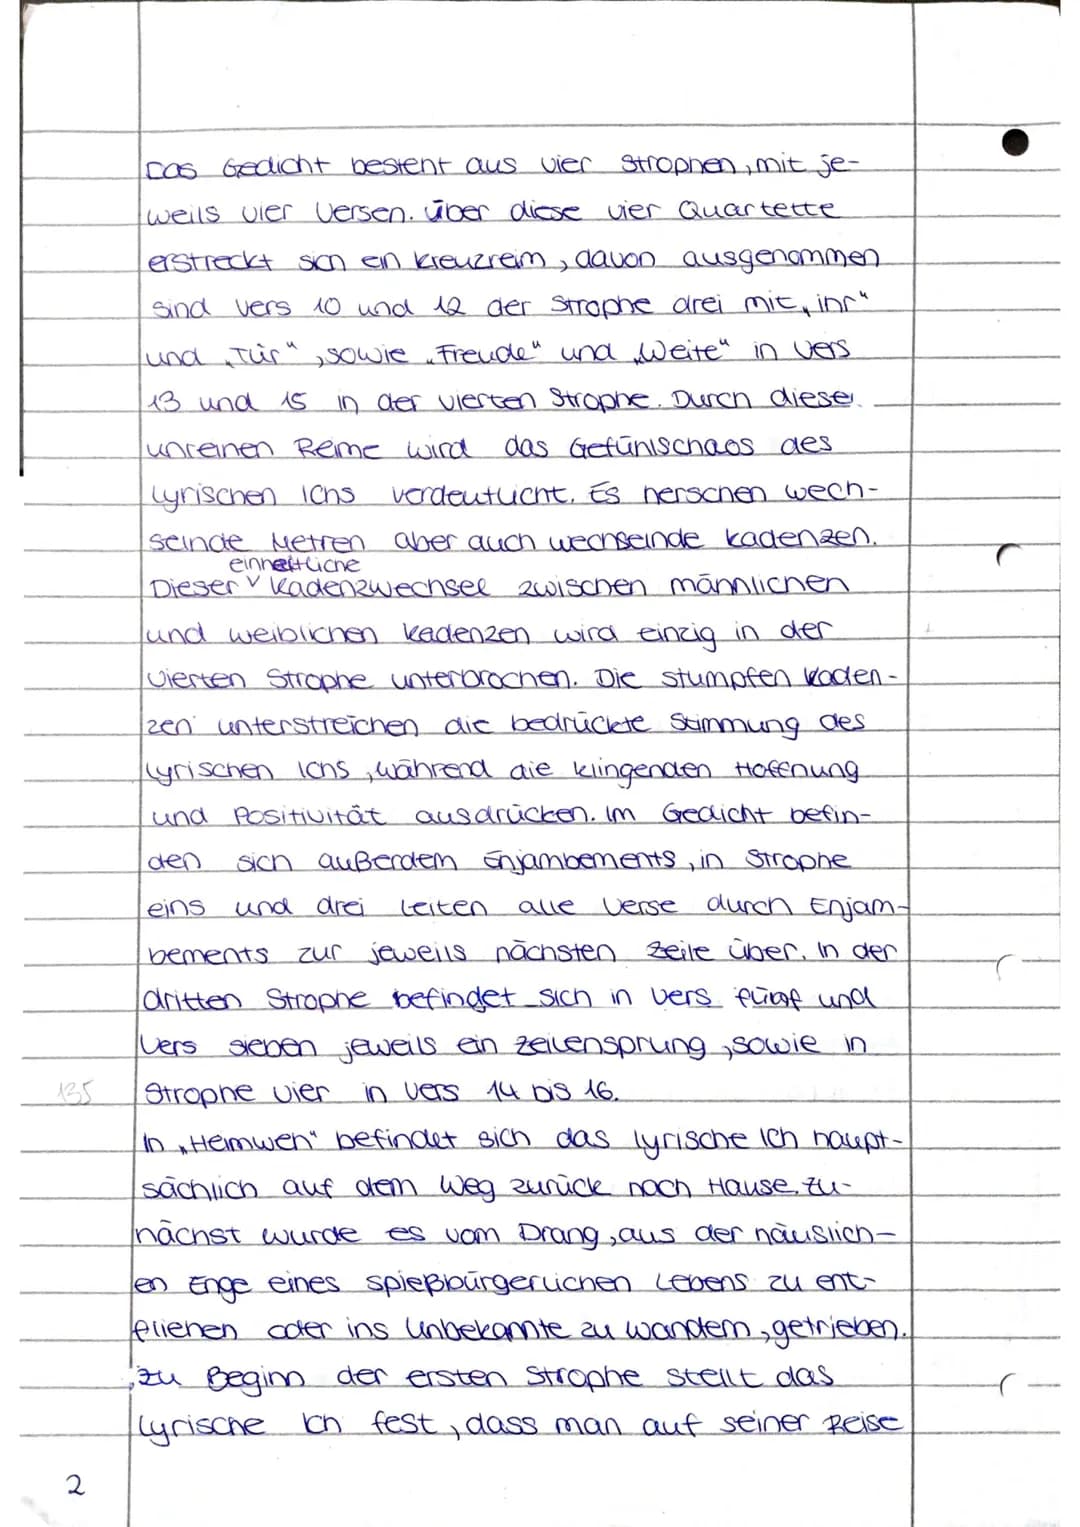 Das Gedicht besteht aus vier Strophen, mit je-
weils vier Versen. Über diese vier Quartette
erstreckt sich ein Kreuzreim, davon ausgenommen
sind Vers 10 und 12 der Strophe drei mit „ihr“
und „Tür“, sowie „Freude“ und „Weite“ in Vers
13 und 15 in der vierten Strophe. Durch diese
unreinen Reime wird das Gefühlschaos des
lyrischen Ichs verdeutlicht. Es herschen wech-
selnde Metren aber auch wechselnde Kadenzen.
einheitliche
Dieser ∨ Kadenzwechsel zwischen männlichen
und weiblichen Kadenzen wird einzig in der
vierten Strophe unterbrochen. Die stumpfen Kaden-
zen unterstreichen die bedrückte Stimmung des
lyrischen Ichs, während die klingenden Hoffnung
und Positivität ausdrücken. Im Gedicht befin-
den sich außerdem Enjambements, in Strophe
eins und drei leiten alle Verse durch Enjam-
bements zur jeweils nächsten Zeile über. In der
dritten Strophe befindet sich in Vers fünf und
Vers sieben jeweils ein Zeilensprung, sowie in
135
Strophe vier in Vers 14 bis 16.
In „Heimweh“ befindet sich das lyrische Ich haupt-
sächlich auf dem Weg zurück nach Hause. Zu-
nächst wurde es vom Drang, aus der häuslich-
en Enge eines spießbürgerlichen Lebens zu ent-
fliehen oder ins Unbekannte zu wandern, getrieben.
Zu Beginn der ersten Strophe stellt das
lyrische Ich fest, dass man auf seiner Reise
2